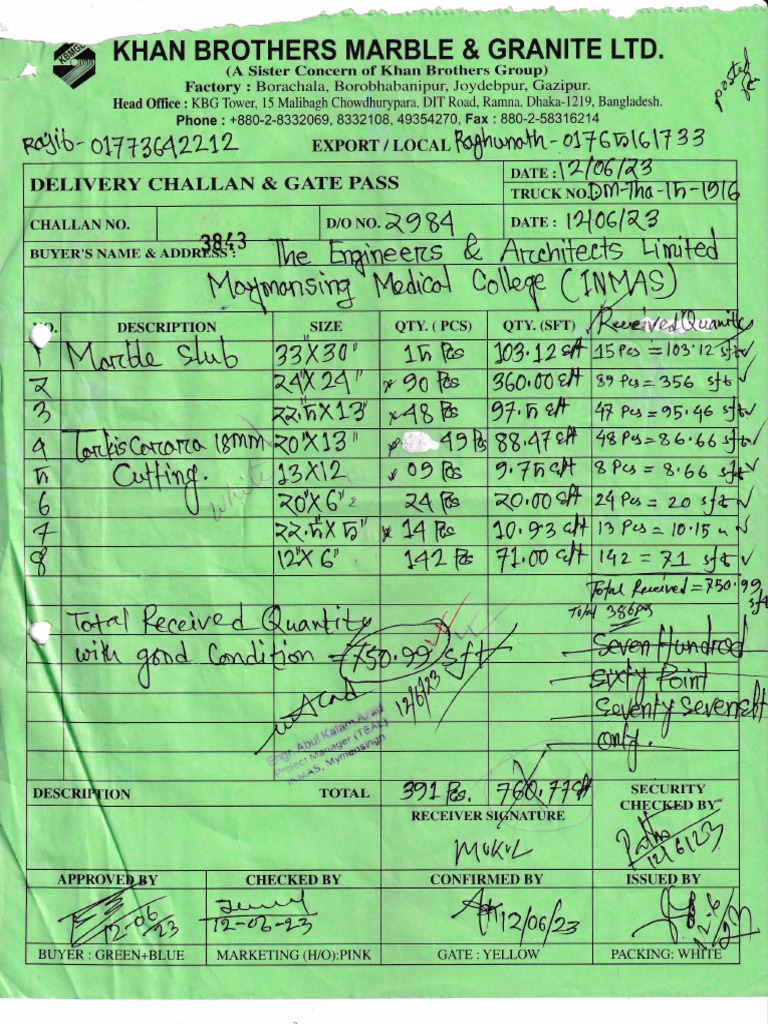 KBMGL
KHAN BROTHERS MARBLE & GRANITE LTD.
(A Sister Concern of Khan Brothers Group)
Factory : Borachala, Borobhabanipur, Joydebpur, Gazipur.
Head Office : KBG Tower, 15 Malibagh Chowdhurypara, DIT Road, Ramna, Dhaka-1219, Bangladesh.
Phone : +880-2-8332069, 8332108, 49354270, Fax : 880-2-58316214
posted
Rajib-01773642212 EXPORT / LOCAL Raghunath-01765161733
DELIVERY CHALLAN & GATE PASS DATE : 12/06/23
TRUCK NO. DM-Tha-15-1916
CHALLAN NO. D/O NO. 2984 DATE : 12/06/23
3843
BUYER'S NAME & ADDRESS : The Engineers & Architects Limited
Maymonsing Medical College (INMAS)
NO. DESCRIPTION SIZE QTY. ( PCS) QTY. (SFT) Received Quantity
1 Marble Slub 33"X30" 15 Pcs 103.12 sft 15 Pcs = 103.12 sft
2 24"X24" 90 Pcs 360.00 sft 89 Pcs = 356 sft
3 22.5"X13" 48 Pcs 97.5 sft 47 Pcs = 95.46 sft
4 Tarkis Carara 18mm 20"X13" 49 Ps 88.47 sft 48 Pcs = 86.66 sft
5 Cutting. 13X12 09 Pcs 9.75 sft 8 Pcs = 8.66 sft
white
6 20"X6" 24 Pcs 20.00 sft 24 Pcs = 20 sft
7 22.5"X5" 14 Pcs 10.93 sft 13 Pcs = 10.15 "
8 12"X6" 142 Pcs 71.00 sft 142 = 71 sft
Total Received = 750.99 sft
Total 386 pcs
Total Received Quantity
with good Condition = 750.99 sft
Seven Hundred
sixty Point
Seventy Seven sft
only.
Azad
12/6/23
Engr. Abul Kalam Azad
Project Manager (TEAL)
INMAS, Mymensingh
DESCRIPTION TOTAL 391 Pcs. 760.77 sft SECURITY
CHECKED BY
RECEIVER SIGNATURE
MUKUL
12/6/23
APPROVED BY CHECKED BY CONFIRMED BY ISSUED BY
12-06-23 12-06-23 12/06/23 12-6-23
BUYER : GREEN+BLUE MARKETING (H/O):PINK GATE : YELLOW PACKING: WHITE